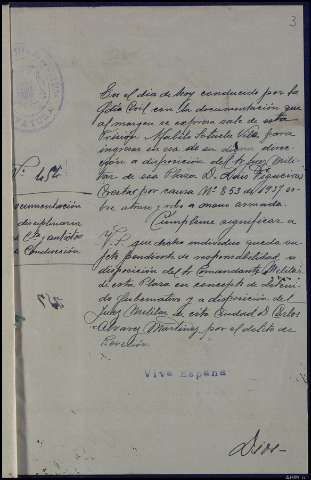 3
En el dia de hoy conducido por la
Gdia Civil con la documentación que
al margen se expresa sale de esta
Prisión para
ingresar en esa de su digna direc-
ción a disposición del Sr Juez Mili-
tar de esa Plaza D. Luis Figueroa
por causa Nº 853 de 1937 so-
bre robo a mano armada.
Cumpleme significar a
V.S. que dicho individuo queda su-
jeto pendiente de responsabilidad, a
disposición del Sr Comandante Militar
de esta Plaza en concepto de Deteni-
do Gubernativo y a disposición del
Juez Militar de esta Ciudad D. Carlos
Alvarez Martinez por el delito de
Viva España
Dios-
Nº
Documentación
disciplinaria
Conducción